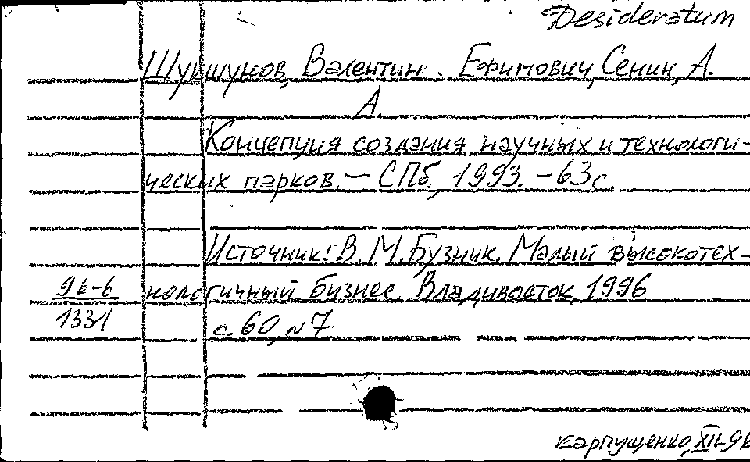 Desideratum
Шукшунов, Валентин Ефимович, Сенин, А.
А.
Концепция создания научных и технологи-
ческих парков. — СПб, 1993. - 63с.
Источник: В. М. Бузник. Малый высокотех-
96-6 нологичный бизнес. Владивосток, 1996
1331 с. 60, №7
Карпущенко, XII-96